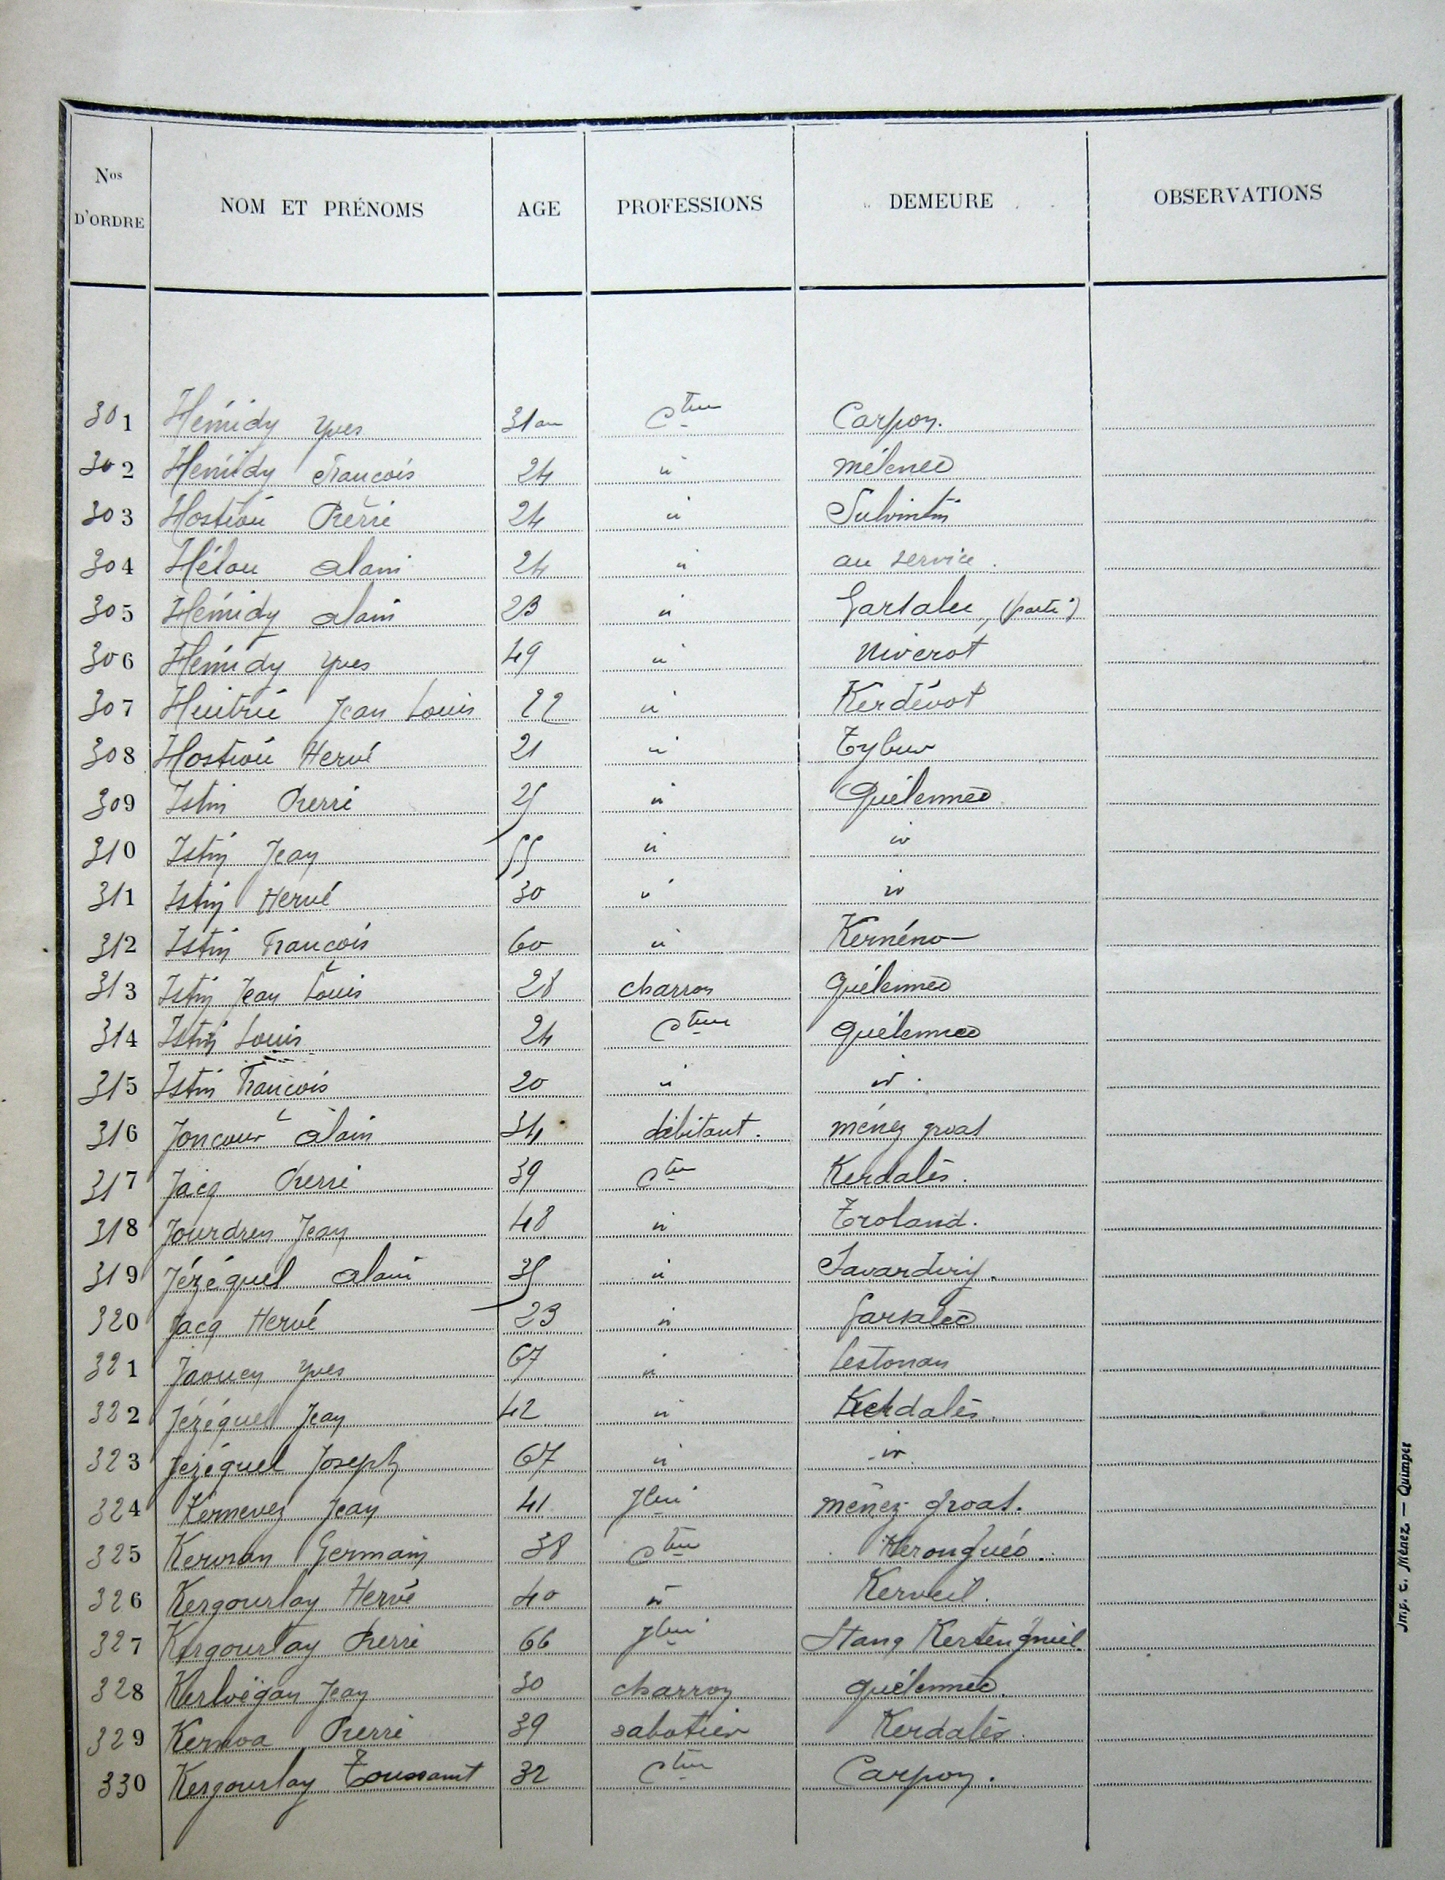 Nos D'ORDRE NOM ET PRÉNOMS AGE PROFESSIONS DEMEURE OBSERVATIONS
301 Hémidy Yves 31 an Cteur Carpon.
302 Hémidy François 24 " mélenec
303 Hostiou Pierre 24 " Sulvintin
304 Hélou alain 24 " au service.
305 Hémidy alain 23 " Garsalec, (parti)
306 Hémidy Yves 49 " Niverot
307 Huitric Jean Louis 22 " Kerdévot
308 Hostiou Hervé 21 "
309 Istin Pierre 25 " Quélennec
310 Istin Jean 55 " "
311 Istin Hervé 30 " "
312 Istin François 60 " Kernéno
313 Istin Jean Louis 28 charron quélennec
314 Istin Louis 24 Cteur quélennec
315 Istin François 20 " "
316 Joncour alain 34 débitant. ménez groas
317 Jacq Pierre 39 Cteur Kerdalès.
318 Jourdren Jean 48 " Troland.
319 Jézéquel alain 35 "
320 Jacq Hervé 23 " Garsalec
321 Jaouen Yves 67 " Lestonan
322 Jézéquel Jean 42 " Kerdalès.
323 Jézéquel Joseph 67 " "
324 Kernevez Jean 41 menez groas.
325 Kervran Germain 38 Cteur Kerongué
326 Kergourlay Hervé 40 " Kerveil.
327 Kergourlay Pierre 66 Stang
328 Kerloégan Jean 30 charron quélennec
329 Kernoa Pierre 39 sabotier Kerdalès.
330 Kergourlay Toussaint 32 Cteur Carpon.
Imp. C. Ménez. — Quimper